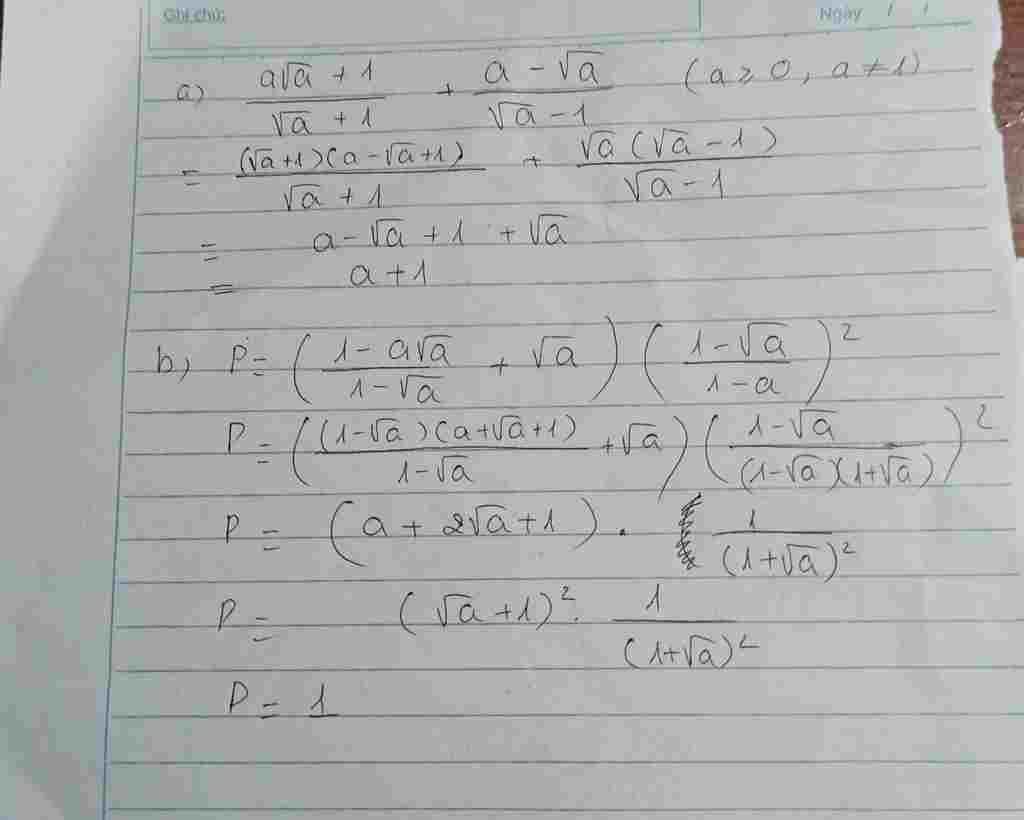 Ghi chú: Ngày / /
a) (a√a + 1)/(√a + 1) + (a - √a)/(√a - 1) (a ≥ 0, a ≠ 1)
= ((√a+1)(a-√a+1))/(√a + 1) + (√a(√a - 1))/(√a - 1)
= a - √a + 1 + √a
= a + 1
b) P = ((1 - a√a)/(1 - √a) + √a) ((1 - √a)/(1 - a))²
P = (((1-√a)(a+√a+1))/(1-√a) + √a) ((1-√a)/((1-√a)(1+√a)))²
P = (a + 2√a + 1) . 1/(1+√a)²
P = (√a + 1)² . 1/(1+√a)²
P = 1